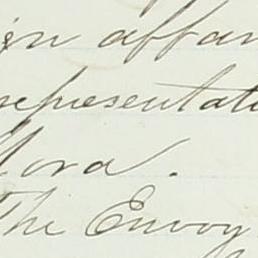 ign affair
representati
Mora.
The Envoy